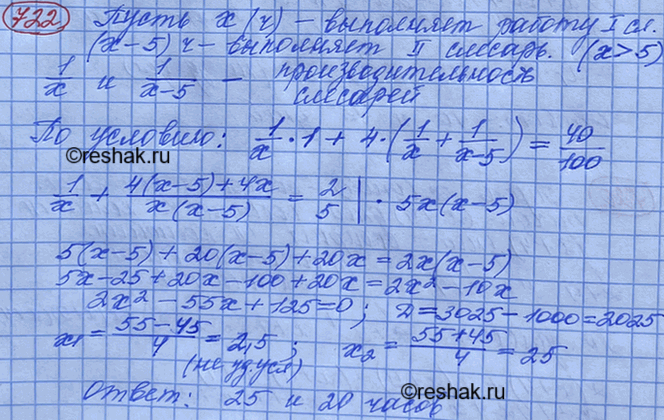 722 Пусть x (ч) – выполняет работу I сл.
(x-5) ч – выполняет II слесарь. (x > 5)
1/x и 1/(x-5) – производительность
слесарей
По условию: 1/x · 1 + 4 · (1/x + 1/(x-5)) = 40/100
©reshak.ru
1/x + (4(x-5)+4x)/(x(x-5)) = 2/5 | · 5x(x-5)
5(x-5) + 20(x-5) + 20x = 2x(x-5)
5x - 25 + 20x - 100 + 20x = 2x² - 10x
2x² - 55x + 125 = 0 ; D = 3025 - 1000 = 2025
x₁ = (55-45)/4 = 2,5 ; x₂ = (55+45)/4 = 25
(не уд. усл)
Ответ: 25 и 20 часов
©reshak.ru